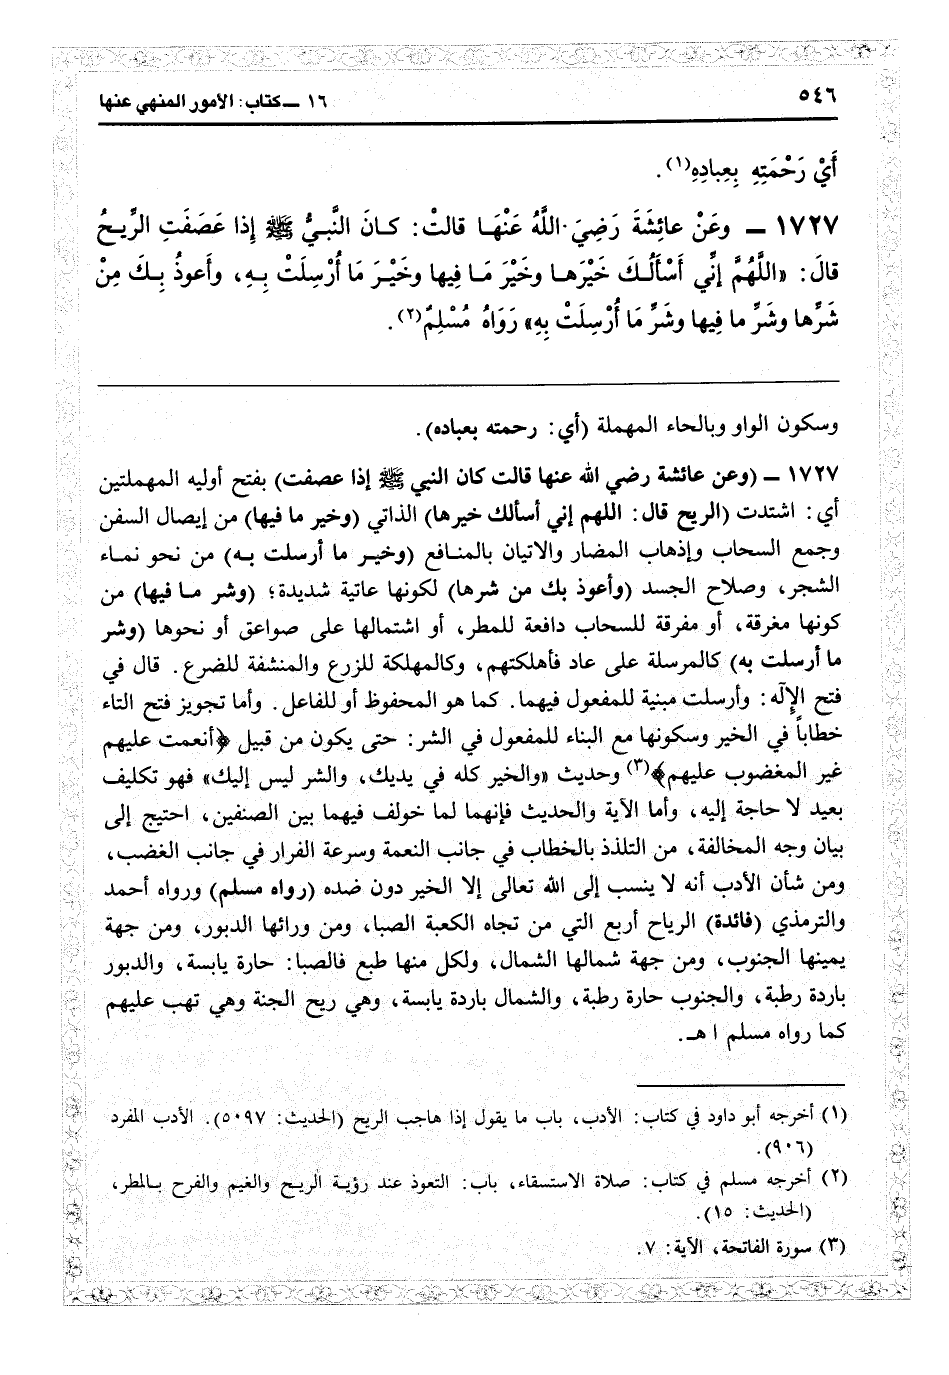 ٥٤٦
١٦ ــ كتاب: الأمور المنهي عنها
أَيْ رَحْمَتِهِ بِعِبادِهِ(١).
١٧٢٧ ــ وعَنْ عائِشَةَ رَضِيَ اللَّهُ عَنْهَا قالتْ: كـانَ النَّبيُّ ﷺ إِذا عَصَفَتِ الرِّيـحُ
قالَ: «اللَّهُمَّ إِنِّي أَسْأَلُـكَ خَيْرَهـا وخَيْرَ مَـا فِيها وخَيْـرَ مـا أُرْسِلَتْ بِـهِ، وأَعوذُ بِـكَ مِنْ
شَرِّها وشَرِّ ما فِيها وشَرِّ مَا أُرْسِلَتْ بِهِ» رَوَاهُ مُسْلِمٌ(٢).
وسكون الواو وبالحاء المهملة (أي: رحمته بعباده).
١٧٢٧ ــ (وعن عائشة رضي الله عنها قالت كان النبي ﷺ إذا عصفت) بفتح أوليه المهملتين
أي: اشتدت (الريح قال: اللهم إني أسألك خيرها) الذاتي (وخير ما فيها) من إيصال السفن
وجمع السحاب وإذهاب المضار والاتيان بالمنـافع (وخيـر ما أرسلت بـه) من نحو نمـاء
الشجر، وصلاح الجسد (وأعوذ بك من شرها) لكونها عاتية شديدة؛ (وشر مـا فيها) من
كونها مغرقة، أو مفرقة للسحاب دافعة للمطر، أو اشتمالها على صواعق أو نحوها (وشر
ما أرسلت به) كالمرسلة على عاد فأهلكتهم، وكالمهلكة للزرع والمنشفة للضرع. قال في
فتح الإِلٰه: وأرسلت مبنية للمفعول فيهما. كما هو المحفوظ أو للفاعل. وأما تجويز فتح التاء
خطاباً في الخير وسكونها مع البناء للمفعول في الشر: حتى يكون من قبيل ﴿أنعمت عليهم
غير المغضوب عليهم﴾(٣) وحديث «والخير كله في يديك، والشر ليس إليك» فهو تكليف
بعيد لا حاجة إليه، وأما الآية والحديث فإنهما لما خولف فيهما بين الصنفين، احتيج إلى
بيان وجه المخالفة، من التلذذ بالخطاب في جانب النعمة وسرعة الفرار في جانب الغضب،
ومن شأن الأدب أنه لا ينسب إلى الله تعالى إلا الخير دون ضده (رواه مسلم) ورواه أحمد
والترمذي (فائدة) الرياح أربع التي من تجاه الكعبة الصبا، ومن ورائها الدبور، ومن جهة
يمينها الجنوب، ومن جهة شمالها الشمال، ولكل منها طبع فالصبا: حارة يابسة، والدبور
باردة رطبة، والجنوب حارة رطبة، والشمال باردة يابسة، وهي ريح الجنة وهي تهب عليهم
كما رواه مسلم ا هـ.
(١) أخرجه أبو داود في كتاب: الأدب، باب ما يقول إذا هاجب الريح (الحديث: ٥٠٩٧). الأدب المفرد
(٩٠٦).
(٢) أخرجه مسلم في كتاب: صلاة الاستسقاء، باب: التعوذ عند رؤيـة الريـح والغيم والفرح بـالمطر،
(الحديث: ١٥).
(٣) سورة الفاتحة، الآية: ٧.